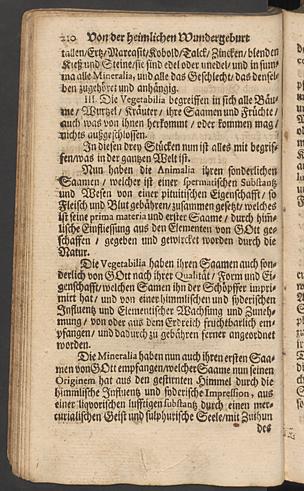 210 Von der heimlichen Wundergeburt
tallen/Ertz/Marcasit/Kobold/Talck/Zincken/blenden
Kieß und Steine/sie sind edel oder unedel/und in sum-
ma alle Mineralia, und alle das Geschlecht/das densel-
ben zugehöret und anhängig.
III. Die Vegetabilia begreiffen in sich alle Bäu-
me/Wurtzel/Kräuter/ihre Saamen und Früchte/
auch was von ihnen herkommt/oder kommen mag/
nichts außgeschlossen.
In diesen drey Stücken nun ist alles mit begrif-
fen/was in der gantzen Welt ist.
Nun haben die Animalia ihren sonderlichen
Saamen/welcher ist einer spermatischen Substantz
und Wesen von einer pituitischen Eigenschafft/so
Fleisch und Blut gebähren/zusammen gesetzt/welches
ist seine prima materia und erster Saame/durch him-
lische Einfliessung aus den Elementen von GOtt ge-
schaffen/gegeben und gewircket worden durch die
Natur.
Die Vegetabilia haben ihren Saamen auch son-
derlich von GOtt nach ihrer Qualität/Form und Ei-
genschafft/welchen Samen ihn der Schöpffer impri-
mirt hat/und von einer himmlischen und syderischen
Influentz und Elementischer Wachsung und Zuneh-
mung/von oder aus dem Erdreich fruchtbarlich em-
pfangen/und dadurch zu gebähren ferner angeordnet
worden.
Die Mineralia haben nun auch ihren ersten Saa-
men von GOtt empfangen/welcher Saame nun seinen
Originem hat aus den gestirnten Himmel durch die
himmlische Influentz und syderische Impression, aus
einer liquorischen lufftigen substantz durch einen mer-
curialischen Geist und sulphurische Seele/mit Zuthun
des